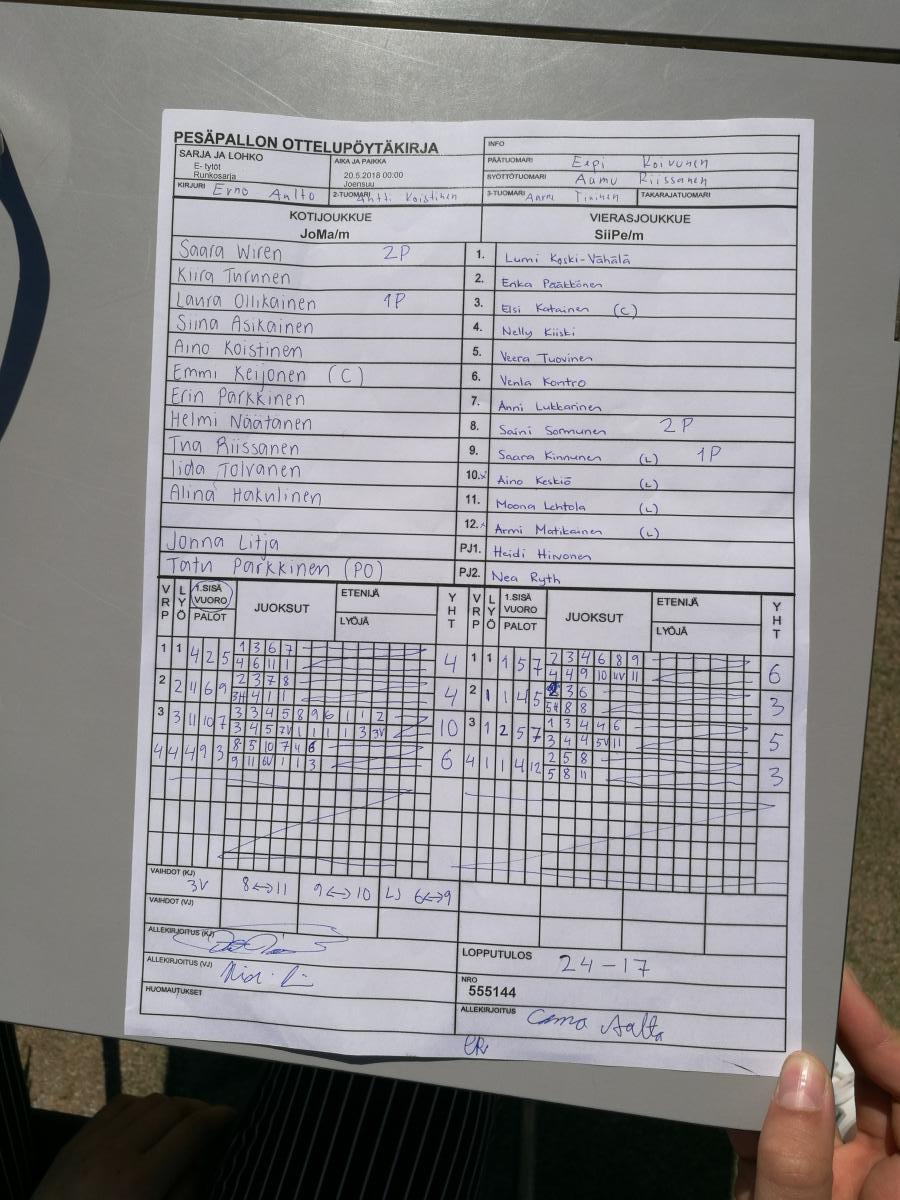 PESÄPALLON OTTELUPÖYTÄKIRJA
INFO
SARJA JA LOHKO
E- tytöt
Runkosarja
AIKA JA PAIKKA
20.5.2018 00:00
Joensuu
PÄÄTUOMARI Eepi Koivunen
SYÖTTÖTUOMARI Aamu Riissanen
KIRJURI Erno Aalto
2-TUOMARI Antti Koistinen
3-TUOMARI
TAKARAJATUOMARI
KOTIJOUKKUE
JoMa/m
VIERASJOUKKUE
SiiPe/m
Saara Wiren 2P 1. Lumi Koski-Vähälä
Kiira Turunen 2. Erika Pääkkönen
Laura Ollikainen 1P 3. Elsi Katainen (C)
Siina Asikainen 4. Nelly Kiiski
Aino Koistinen 5. Veera Tuovinen
Emmi Keijonen (C) 6. Venla Kontro
Erin Parkkinen 7. Anni Lukkarinen
Helmi Näätänen 8. Saini Sormunen 2P
Ina Riissanen 9. Saara Kinnunen (L) 1P
Iida Tolvanen 10. Aino Keskiö (L)
Alina Hakulinen 11. Moona Lehtola (L)
12. Armi Matikainen (L)
Jonna Litja PJ1. Heidi Hirvonen
Tatu Parkkinen (PO) PJ2. Nea Ryth
VRP LYÖ 1.SISÄ VUORO PALOT JUOKSUT ETENIJÄ LYÖJÄ YHT VRP LYÖ 1.SISÄ VUORO PALOT JUOKSUT ETENIJÄ LYÖJÄ YHT
1 1 4 2 5 1 3 6 7 4 1 1 1 5 7 2 3 4 6 8 9 6
4 6 11 1 4 4 9 10 4V 11
2 2 11 6 9 2 3 7 8 4 2 1 1 4 5 2 3 6 3
3H 4 1 1 5H 8 8
3 3 11 10 7 3 3 4 5 8 9 6 1 1 2 10 3 1 2 5 7 1 3 4 4 6 5
3 4 5 7V 1 1 1 1 3 3V 3 4 4 5V 11
4 4 4 9 3 8 5 10 7 4 6 6 4 1 1 4 12 2 5 8 3
9 11 6V 1 1 3 5 8 11
VAIHDOT (KJ)
3V 8↔11 9↔10 LJ 6↔9
VAIHDOT (VJ)
ALLEKIRJOITUS (KJ)
LOPPUTULOS 24-17
ALLEKIRJOITUS (VJ)
NRO
555144
HUOMAUTUKSET
ALLEKIRJOITUS